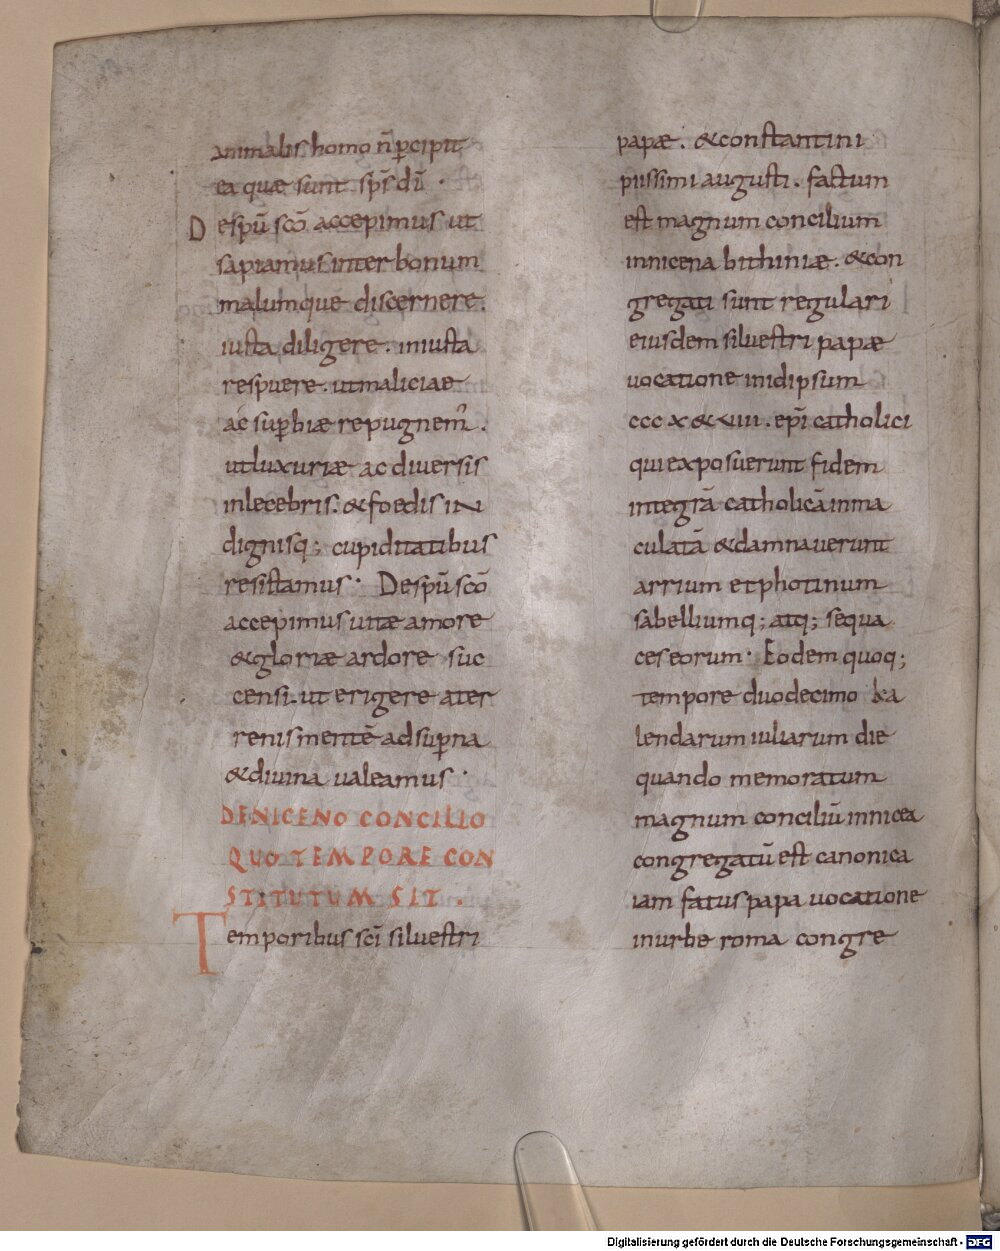 animalis homo n̄ p̄cipit
ea quæ sunt sp̄s dī ·
Despū scō accepimus ut
sapiamus inter bonum
malumque discernere.
iusta diligere. iniusta
respuere. ut maliciae
ac sup̄biæ repugnem̄.
ut luxuriæ ac diuersis
inlecebris. & foedis in
dignisq; cupiditatibus
resistamus · Despū scō
accepimus uitæ amore
& gloriæ ardore suc
censi. ut erigere a ter
renis mentē ad sup̄na
& diuina ualeamus ·
DE NICENO CONCILIO
QUO TEMPORE CON
STITUTUM SIT .
Temporibus scī siluestri
papæ . & constantini
piissimi augusti . factum
est magnum concilium
in nicena bithiniæ . & con
gregati sunt regulari
eiusdem siluestri papæ
uocatione in idipsum
ccc x & viii . ep̄i catholici
qui exposuerunt fidem
integrā catholicā inma
culatā & damnauerunt
arrium et photinum
sabelliumq; atq; sequa
ces eorum · Eodem quoq;
tempore duodecimo ka
lendarum iuliarum die
quando memoratum
magnum conciliū in nicea
congregatū est canonica
iam fatus papa uocatione
in urbe roma congre
Digitalisierung gefördert durch die Deutsche Forschungsgemeinschaft - DFG